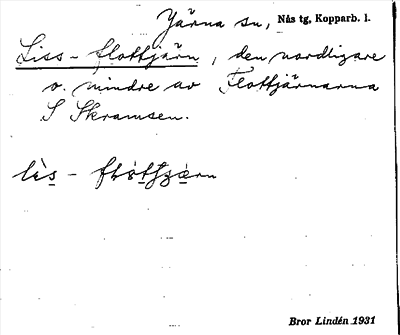 Järna sn, Nås tg, Kopparb. l.
Liss-flottjärn, den nordligare
o. mindre av Flottjärnarna
S Skramsen.
Bror Lindén 1931